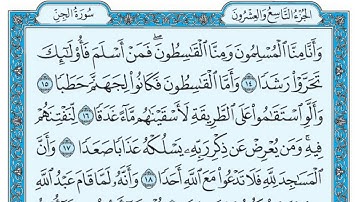 الجزء التاسع والعشرون
سورة الجن
وَأَنَّا مِنَّا ٱلْمُسْلِمُونَ وَمِنَّا ٱلْقَٰسِطُونَ ۖ فَمَنْ أَسْلَمَ فَأُو۟لَٰٓئِكَ
تَحَرَّوْا۟ رَشَدًا ١٤ وَأَمَّا ٱلْقَٰسِطُونَ فَكَانُوا۟ لِجَهَنَّمَ حَطَبًا ١٥
وَأَلَّوِ ٱسْتَقَٰمُوا۟ عَلَى ٱلطَّرِيقَةِ لَأَسْقَيْنَٰهُم مَّآءً غَدَقًا ١٦ لِّنَفْتِنَهُمْ
فِيهِ ۚ وَمَن يُعْرِضْ عَن ذِكْرِ رَبِّهِۦ يَسْلُكْهُ عَذَابًا صَعَدًا ١٧ وَأَنَّ
ٱلْمَسَٰجِدَ لِلَّهِ فَلَا تَدْعُوا۟ مَعَ ٱللَّهِ أَحَدًا ١٨ وَأَنَّهُۥ لَمَّا قَامَ عَبْدُ ٱللَّهِ